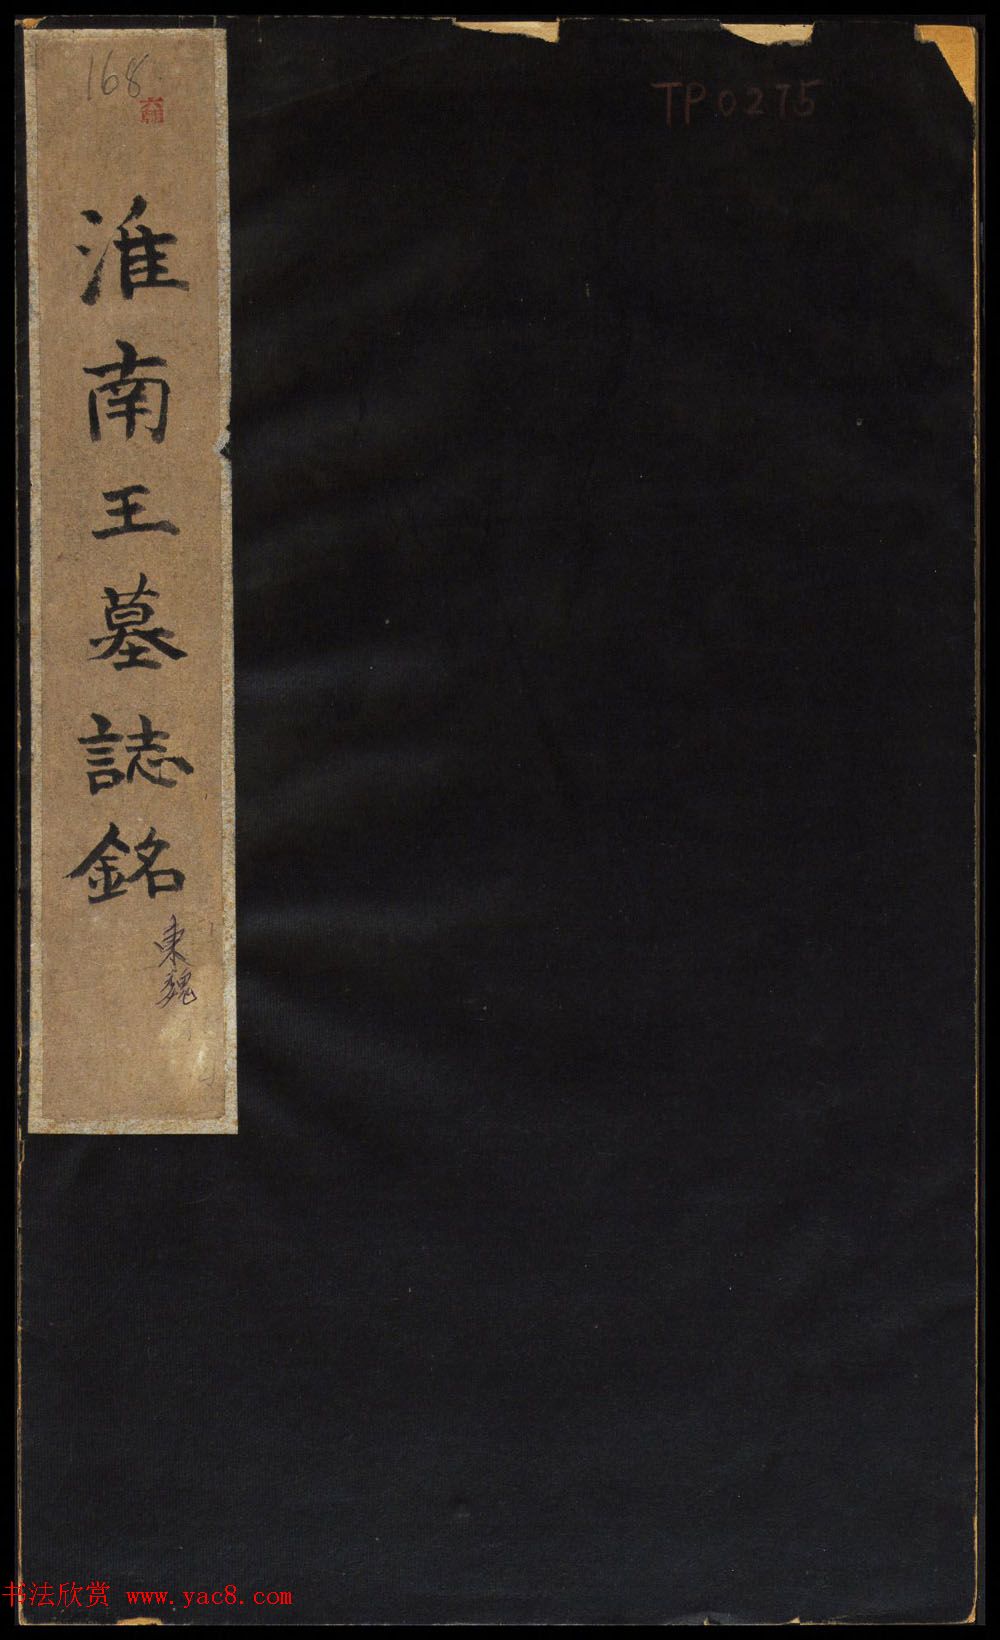 168
淮南王墓誌銘
東魏
TP0275
书法欣赏 www.yac8.com